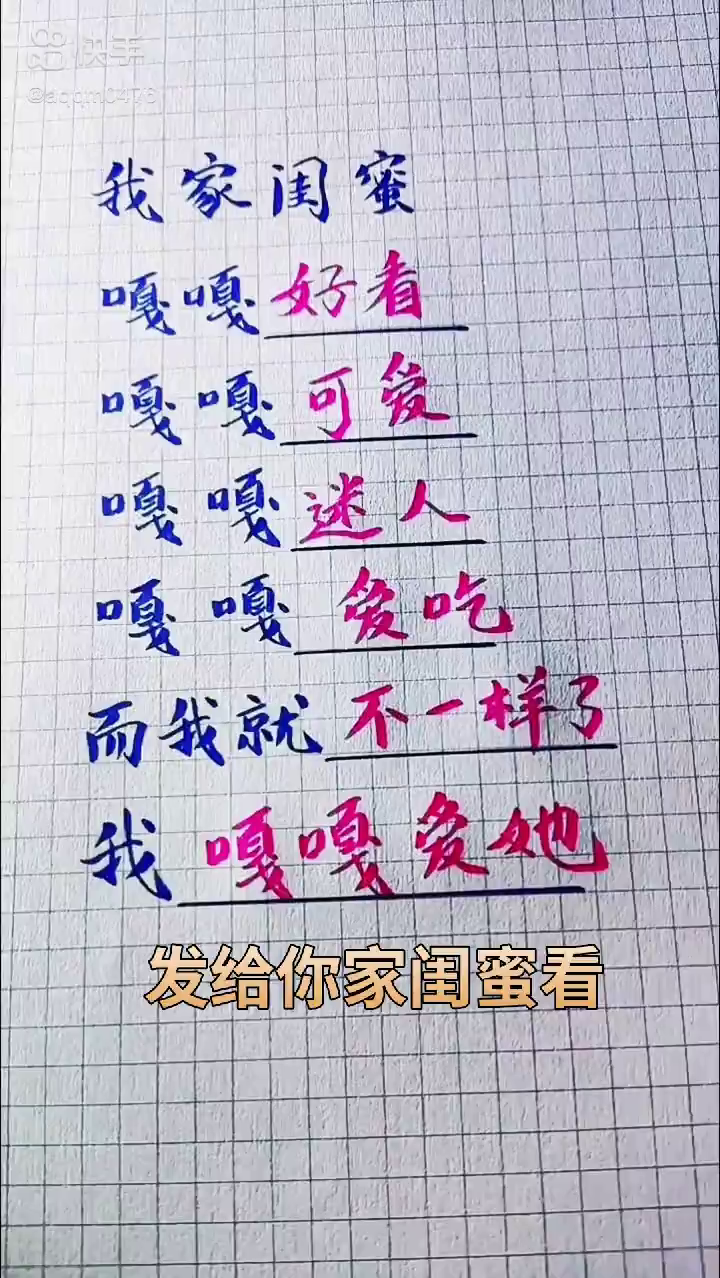 快手
@aqqm0476
我家闺蜜
嘎嘎好看
嘎嘎可爱
嘎嘎迷人
嘎嘎爱吃
而我就不一样了
我嘎嘎爱她
发给你家闺蜜看